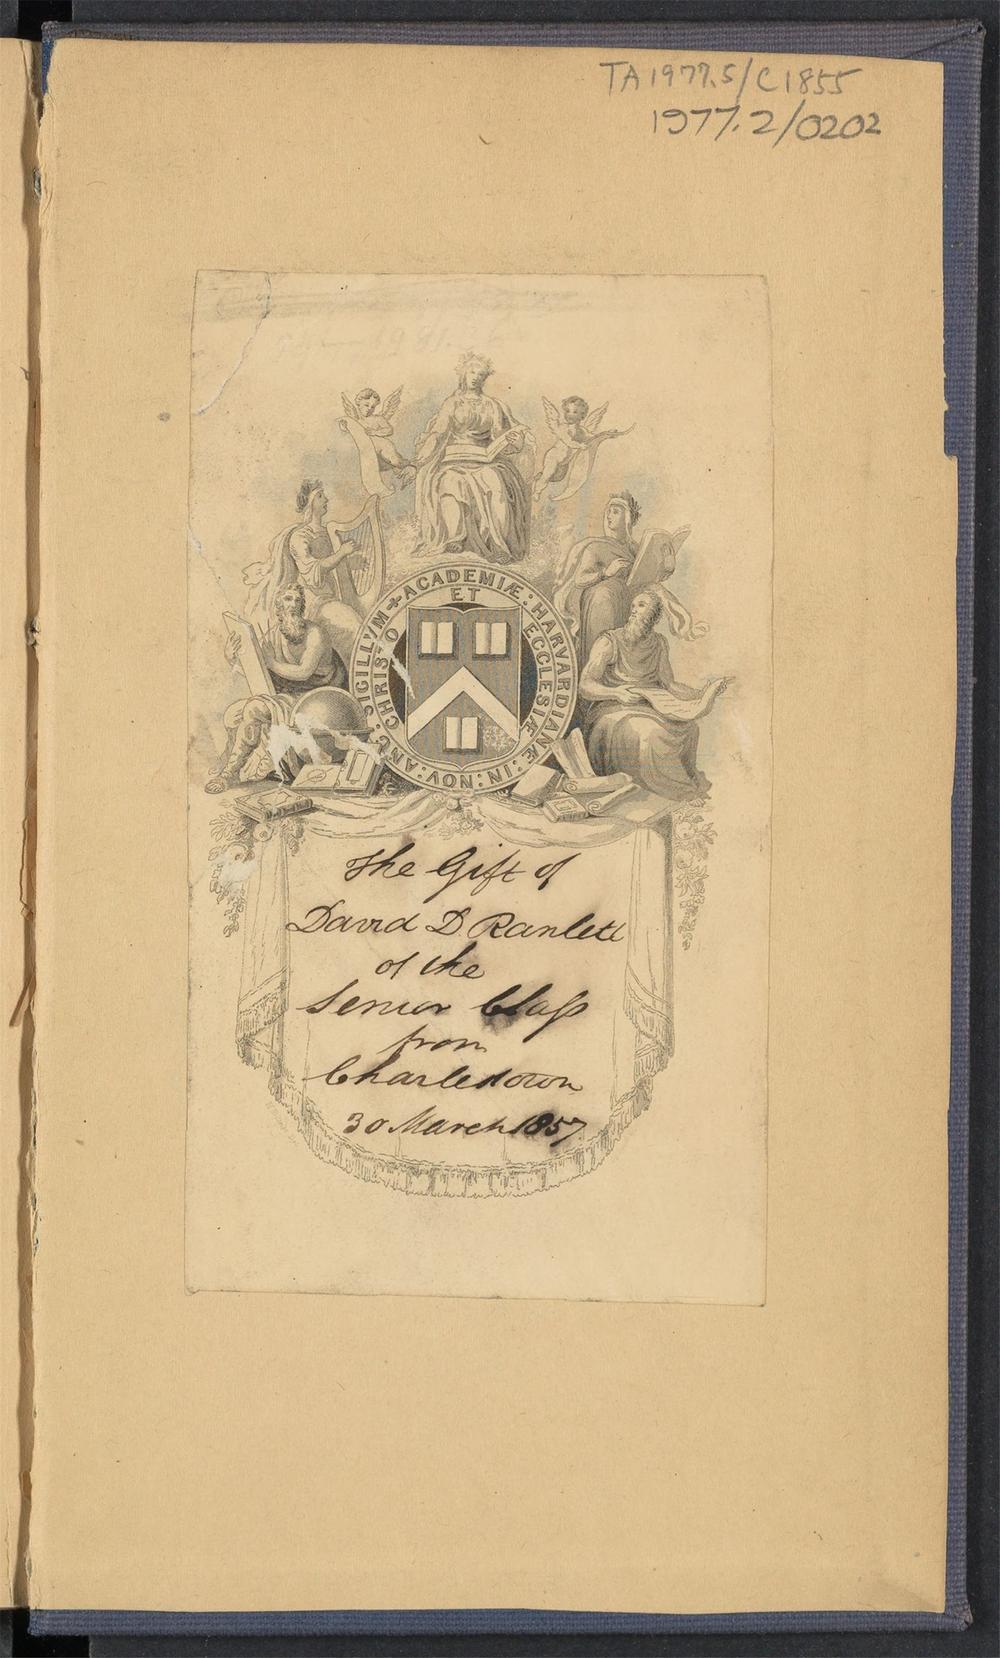 TA1977.5/C1855
1977.2/0202
SIGILLVM ✢ ACADEMIÆ : HARVARDIANÆ : IN : NOV : ANG :
CHRISTO ET ECCLESIÆ
The Gift of
David D Ranlett
of the
Senior Claſs
from
Charlestown
30 March 1857